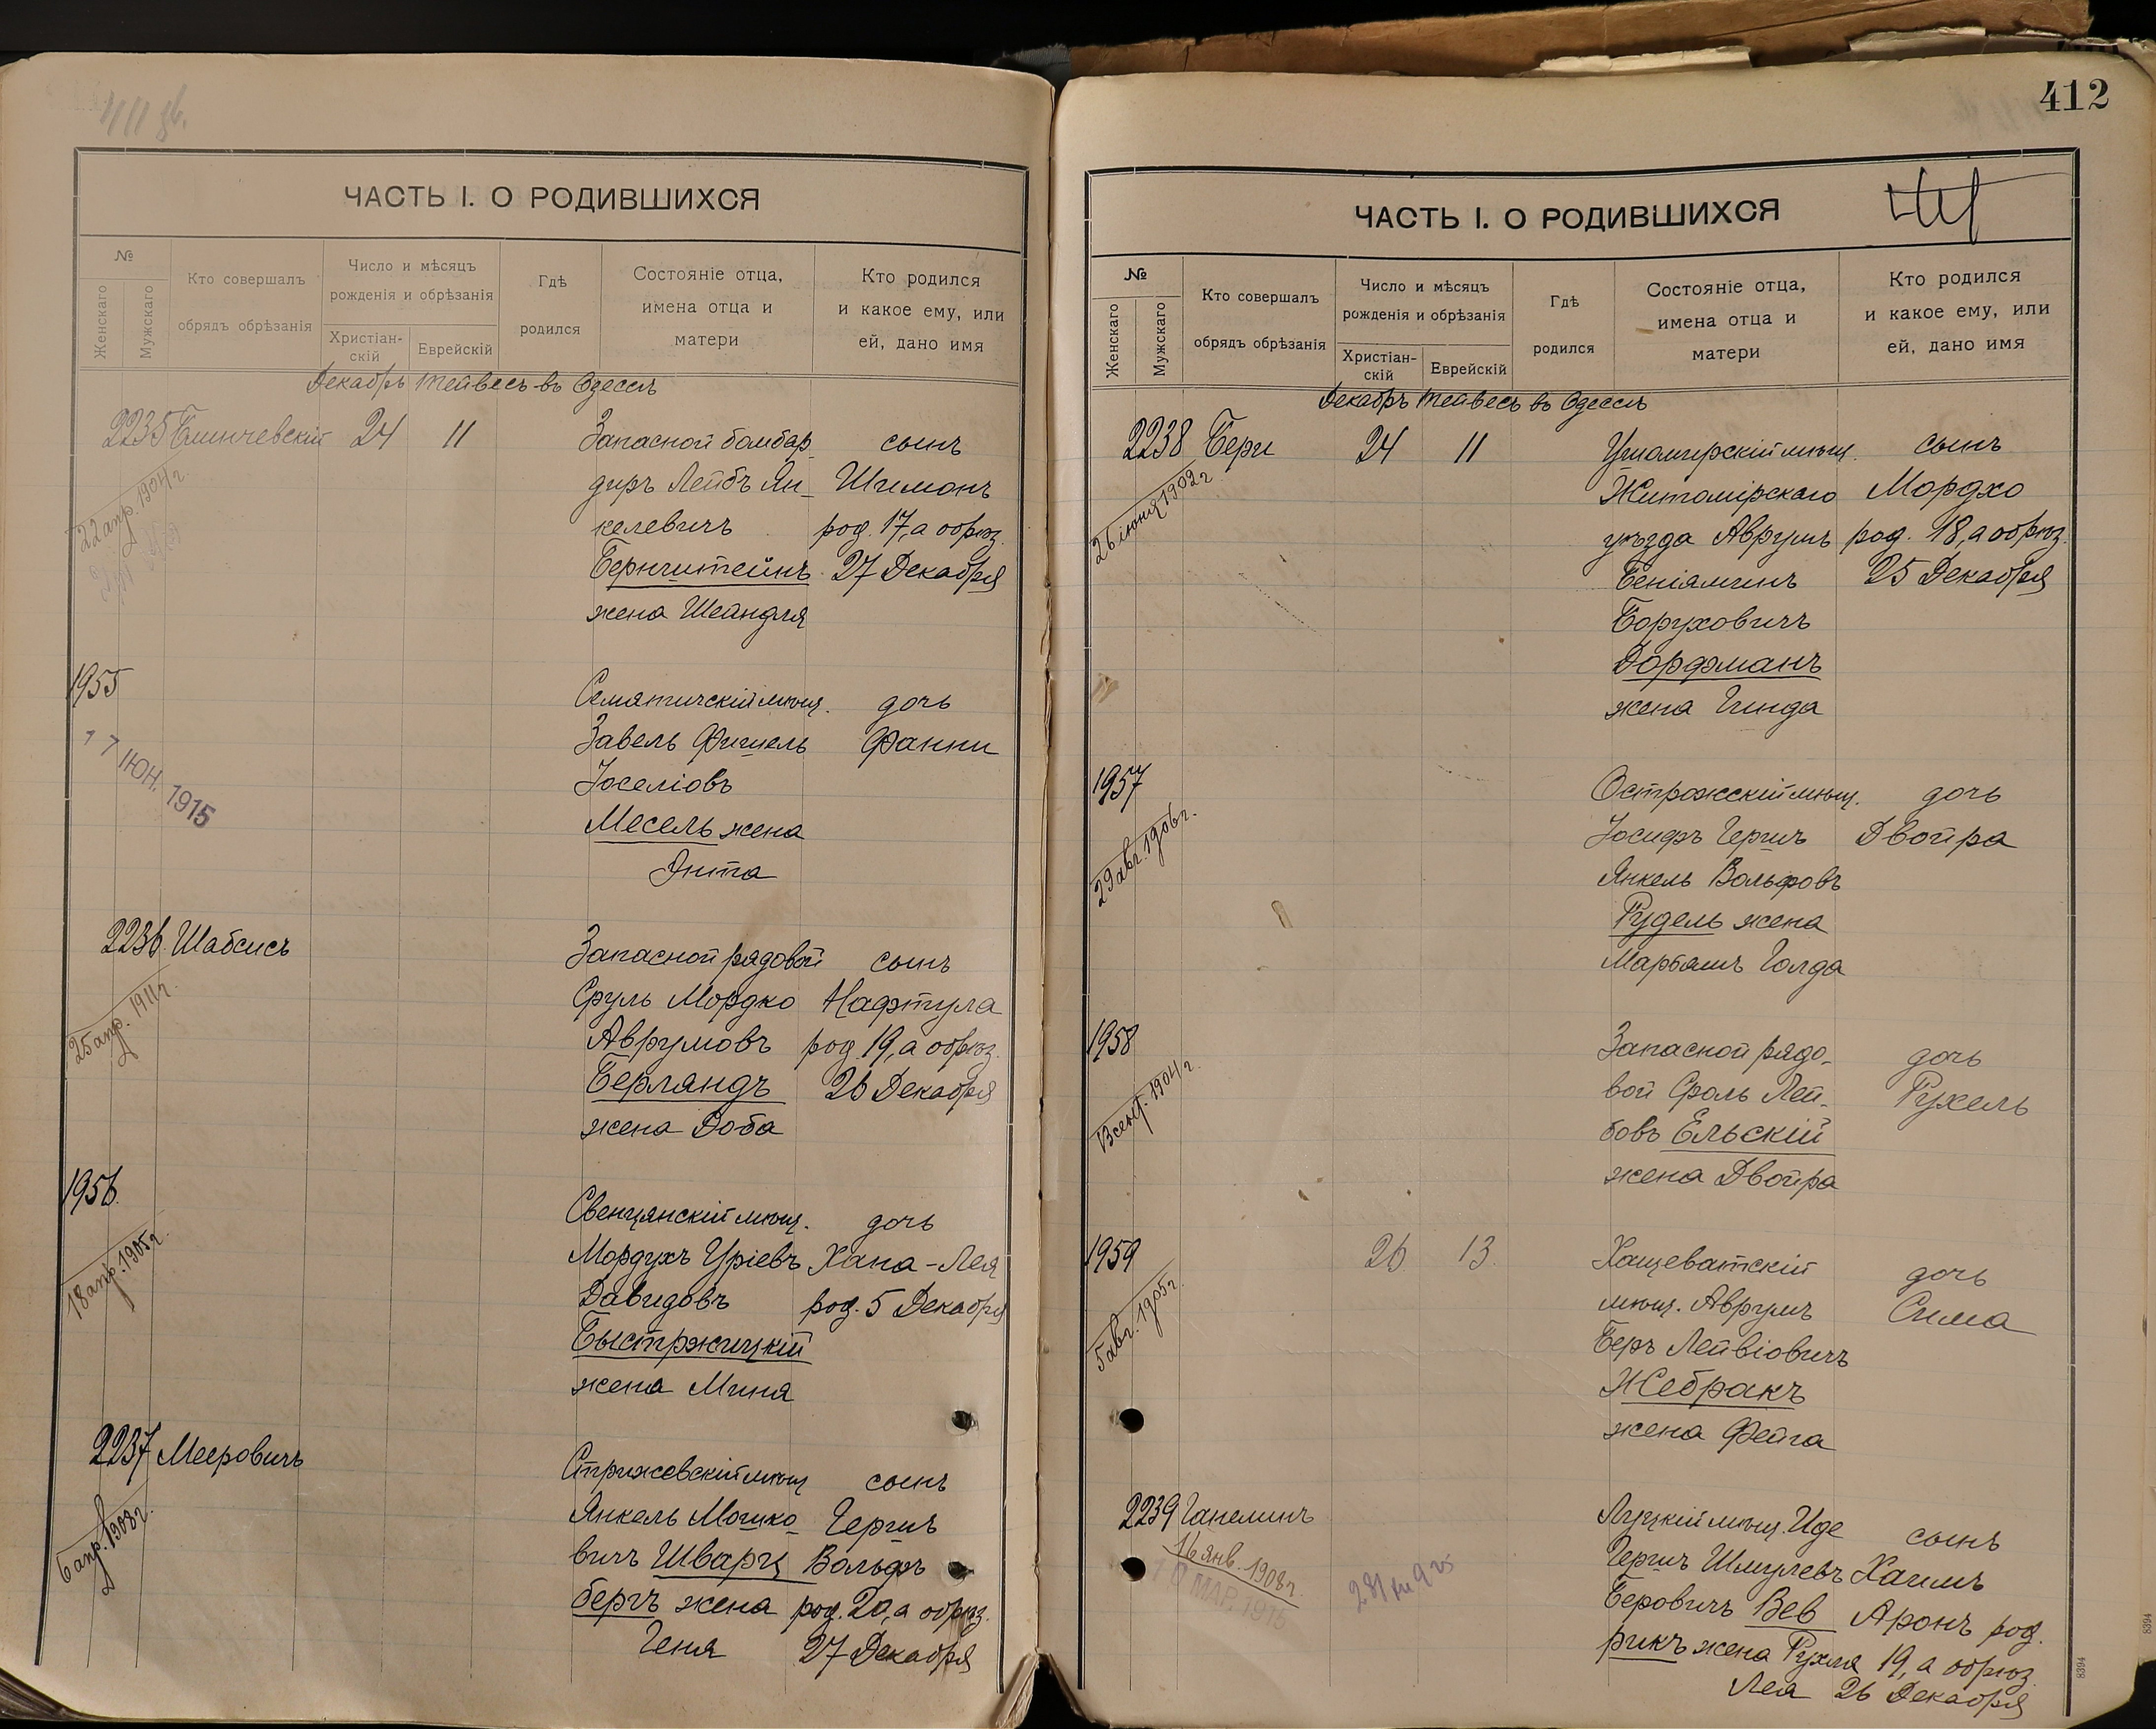 411 об.
ЧАСТЬ I. О РОДИВШИХСЯ
№
Женскаго
Мужскаго
Кто совершалъ
обрядъ обрѣзанія
Число и мѣсяцъ
рожденія и обрѣзанія
Христіан-
скій
Еврейскій
Гдѣ
родился
Состояніе отца,
имена отца и
матери
Кто родился
и какое ему, или
ей, дано имя
Декабрь Тейвесъ въ Одессѣ
2235 Блинчевскій 24 11
22 апр. 1904 г.
Запасной бомбар-
диръ Лейбъ Ян-
келевичъ
Бернштейнъ
жена Шейндля
сынъ
Шимонъ
род. 17, а обрѣз.
27 Декабря
1955
17 ІЮН. 1915
Семятичскій мѣщ.
Завель Фишель
Іоселіовъ
Месель жена
Энта
дочь
Фанни
2236. Шабсисъ
25 апр. 1911 г.
Запасной рядовой
Сруль Мордко
Аврумовъ
Берландъ
жена Доба
сынъ
Нафтула
род. 19, а обрѣз.
26 Декабря
1956.
18 апр. 1905 г.
Свенцянскій мѣщ.
Мордухъ Уріевъ
Давидовъ
Быстржицкій
жена Мина
дочь
Хана-Лея
род. 5 Декабря
2237 Мееровичъ
6 апр. 1908 г.
Стрижевскій мѣщ
Янкель Мошко-
вичъ Шварц
бергъ жена
Геня
сынъ
Гершъ
Вольфъ
род. 20, а обрѣз.
27 Декабря
412
ЧАСТЬ I. О РОДИВШИХСЯ
№
Женскаго
Мужскаго
Кто совершалъ
обрядъ обрѣзанія
Число и мѣсяцъ
рожденія и обрѣзанія
Христіан-
скій
Еврейскій
Гдѣ
родился
Состояніе отца,
имена отца и
матери
Кто родился
и какое ему, или
ей, дано имя
Декабрь Тейвесъ въ Одессѣ
2238 Бери 24 11
26 іюня 1902 г.
Ушомирскій мѣщ.
Житомірскаго
уѣзда Аврумъ
Беніаминъ
Боруховичъ
Дорфманъ
жена Гинда
сынъ
Мордхо
род. 18, а обрѣз.
25 Декабря
1957
29 авг. 1906 г.
Острожскій мѣщ.
Іосифъ Гершъ
Янкель Вольфовъ
Рудель жена
Марьямъ Голда
дочь
Двойра
1958
13 сент. 1904 г.
Запасной рядо-
вой Сроль Лей-
бовъ Ельскій
жена Двойра
дочь
Рухель
1959 26 13.
5 авг. 1905 г.
Хащеватскій
мѣщ. Аврумъ
Беръ Лейвіовичъ
Жебракъ
жена Фейга
дочь
Сима
2239 Ганелинъ
16 янв. 1908 г.
10 МАР. 1915
Луцкій мѣщ. Иде
Гершъ Шмулевъ
Беровичъ Вев
рикъ жена Рухля
Лея
сынъ
Хаимъ
Аронъ род.
19, а обрѣз.
26 Декабря
8394
8394